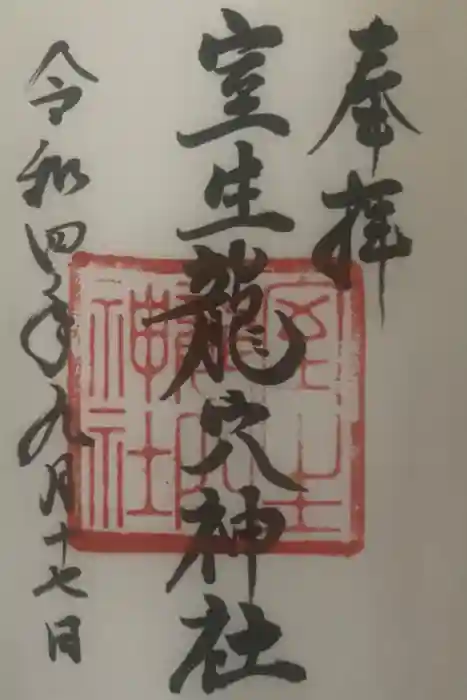 奉拝
室生龍穴神社
室生龍穴神社
令和四年九月十七日